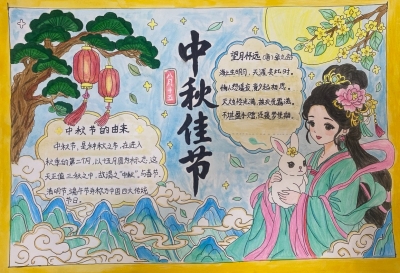 中秋佳节
望月怀远(唐)张九龄
海上生明月,天涯共此时。
情人怨遥夜,竟夕起相思。
灭烛怜光满,披衣觉露滋。
不堪盈手赠,还寝梦佳期。
中秋节的由来
中秋节,是中秋之季,在进入
秋季的第二个月,以十五月圆为标志,这
天正值三秋之中,故谓之"中秋",与春节、
清明节、端午节并称为中国四大传统
节日。